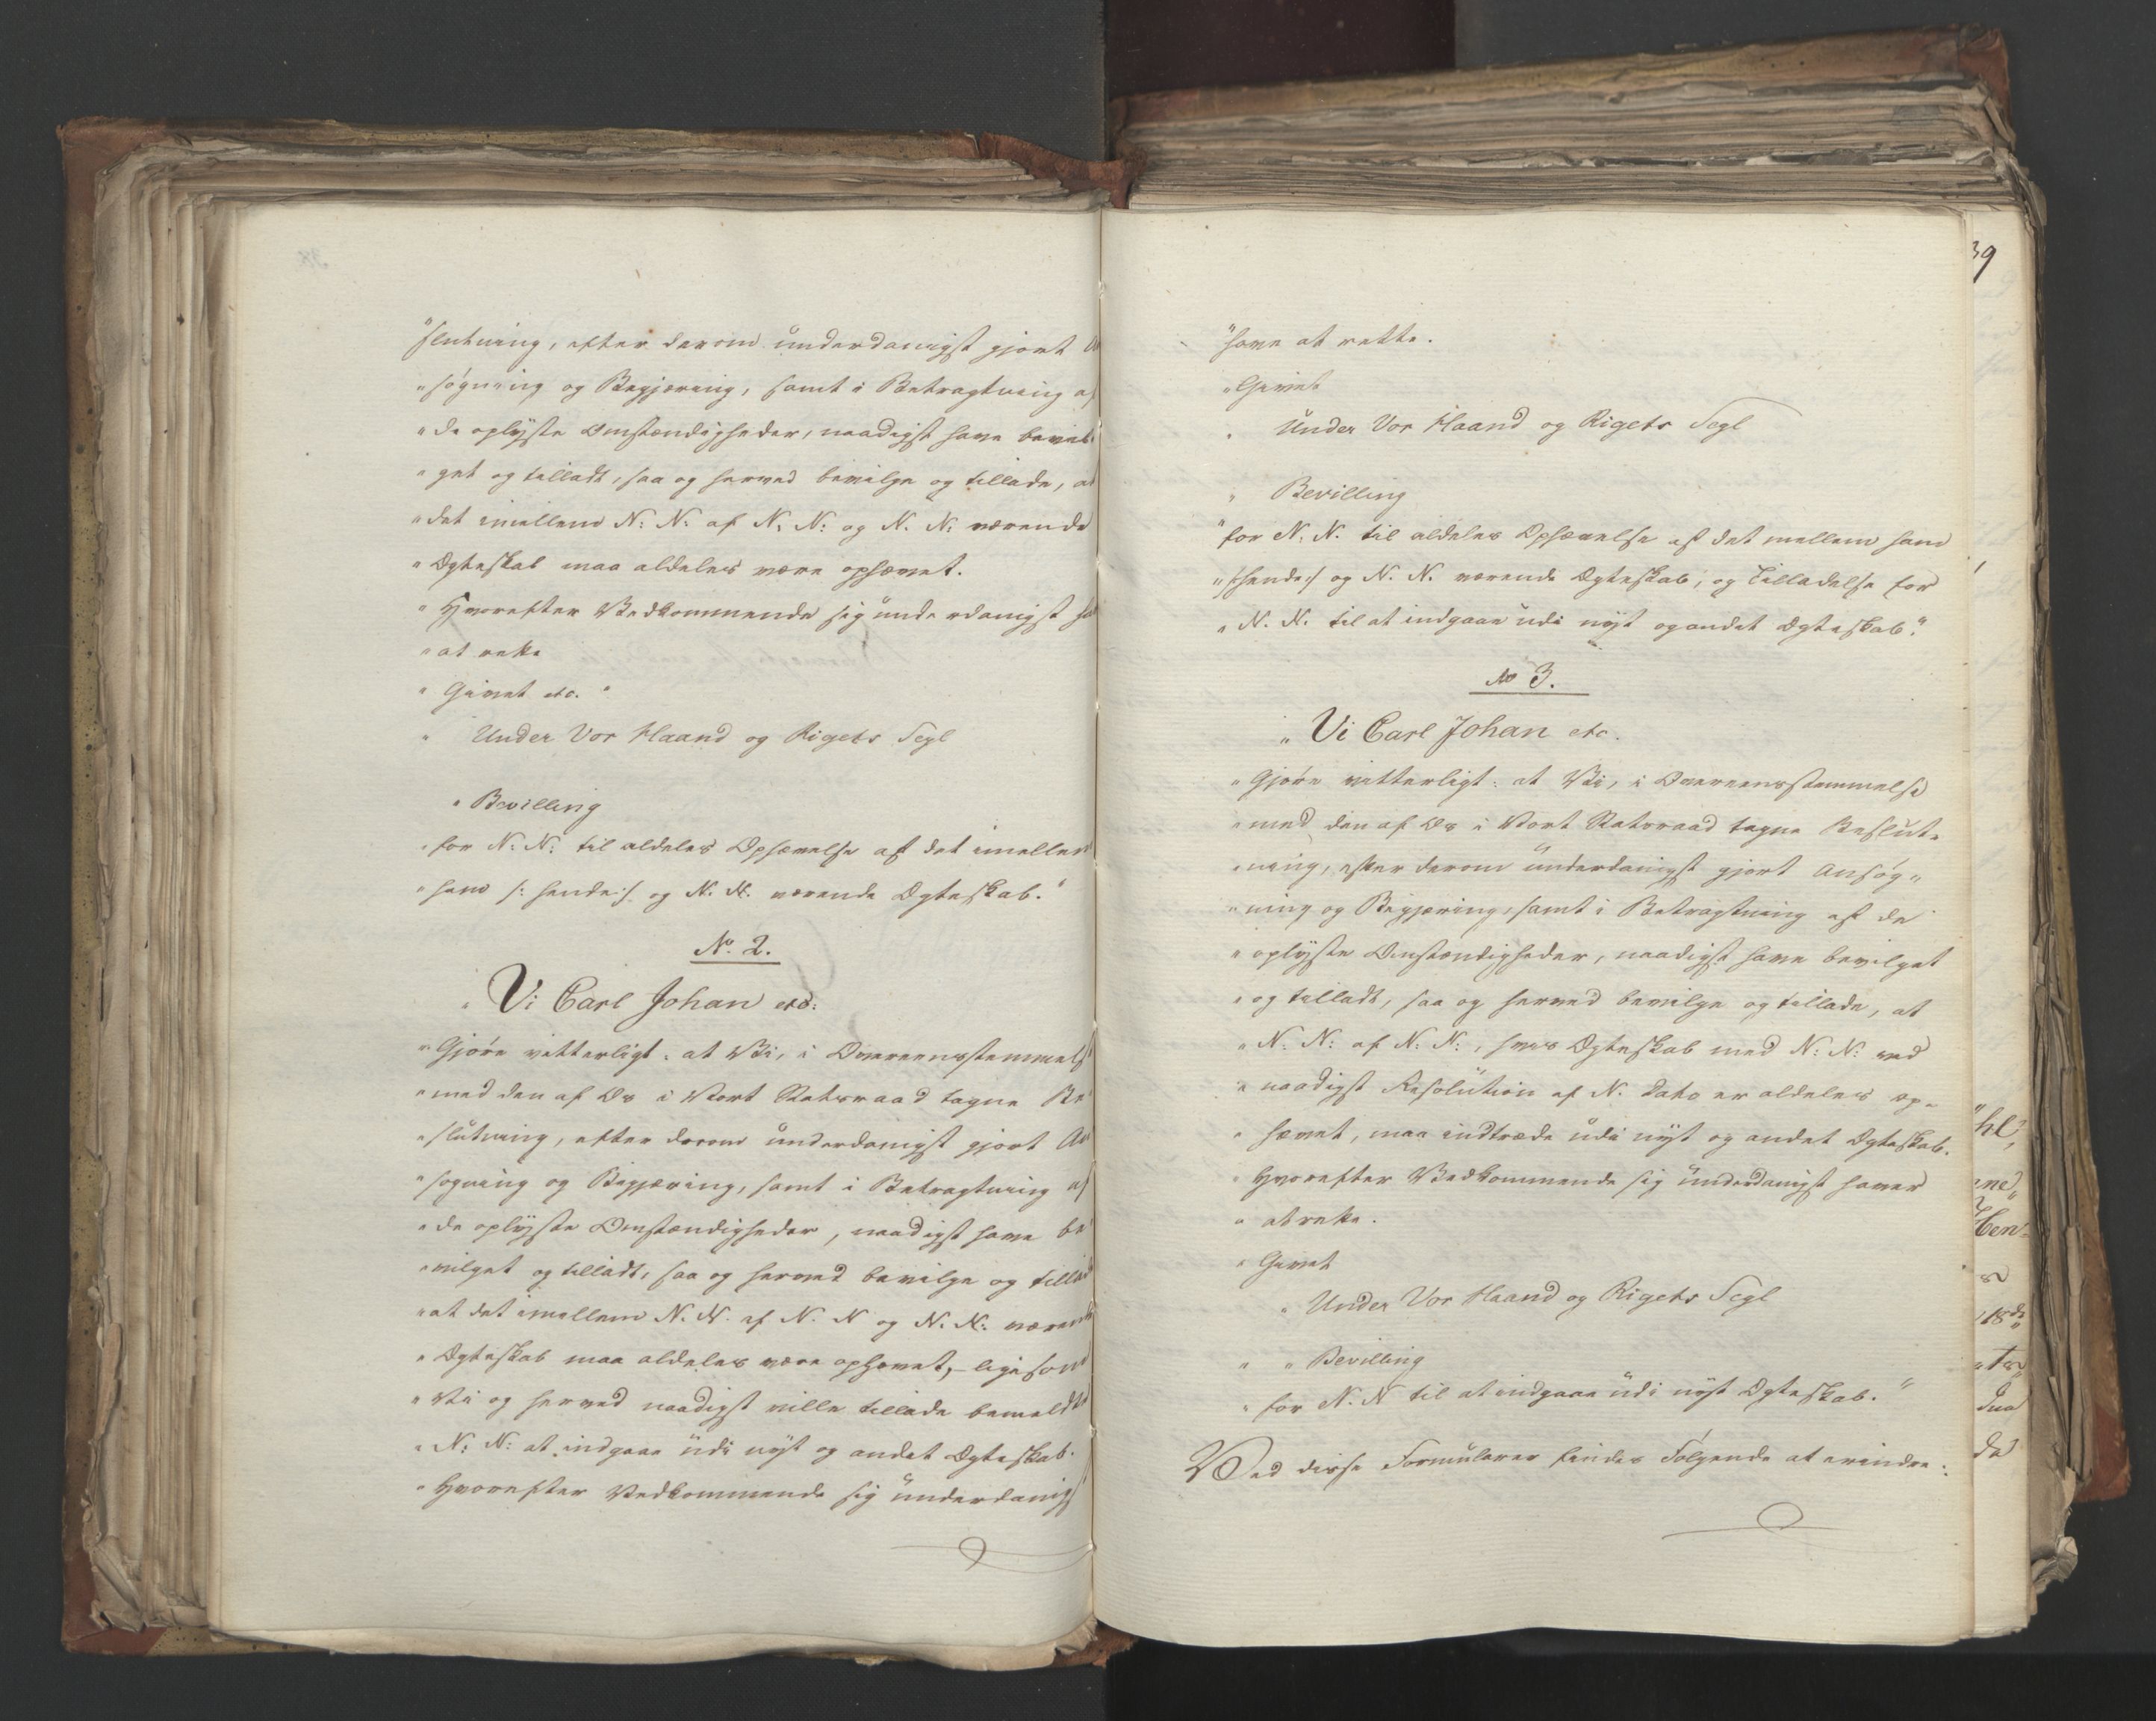 "slutning, efter derom underdanigst gjort
"søgning og Begjæring, samt i Betragtning af
"de oplyste Omstændigheder, naadigst have bevil
"get og tilladt, saa og herved bevilge og tillade, at
"det imellem N: N: af N. N: og N. N: værende
"Ægteskab maa aldeles være ophævet.
"Hvorefter Vedkommende sig underdanigst
"at rette
"Givet etc. "
" Under Vor Haand og Rigets Segl
"Bevilling
"for N. N: til aldeles Ophævelse af det imellem
"ham /: hende :/ og N. N. værende Ægteskab."
No. 2.
"Vi Carl Johan etc:
"Gjøre vitterligt: at Vi, i Overeensstemmelse
"med den af Os i Vort Statsraad tagne Be
"slutning, efter derom underdanigst gjort An
"søgning og Begjæring, samt i Betragtning af
"de oplyste Omstændigheder, naadigst have be
"vilget og tilladt, saa og herved bevilge og tillade
"at det imellem N. N. af N. N og N. N: værende
"Ægteskab maa aldeles være ophævet, ligesom
"Vi og herved naadigst ville tillade bemeldte
"N: N: at indgaae udi nyt og andet Ægteskab.
"Hvorefter Vedkommende sig underdanigst
39
"have at rette.
"Givet
" Under Vor Haand og Rigets Segl
" Bevilling
"for N. N. til aldeles Ophævelse af det mellem ham
"/:hende:/ og N. N. værende Ægteskab, og Tilladelse for
"N. N. til at indgaae udi nyt og andet Ægteskab."
No 3.
"Vi Carl Johan etc.
"Gjøre vitterligt: at Vi, i Overeensstemmelse
"med den af Os i Vort Statsraad tagne Beslut-
"ning, efter derom underdanigst gjort Ansøg"
"ning og Begjæring, samt i Betragtning af de
"oplyste Omstændigheder, naadigst have bevilget
"og tilladt, saa og herved bevilge og tillade, at
"N. N: af N. N:, hvis Ægteskab med N: N: ved
"naadigst Resolution af N. Dato er aldeles op-
"hævet, maa indtræde udi nyt og andet Ægteskab.
"Hvorefter Vedkommende sig underdanigst haver
"at rette.
"Givet
" Under Vor Haand og Rigets Segl
" " Bevilling
"for N. N til at indgaae udi nyt Ægteskab."
Ved disse Formularer findes Følgende at erindre: